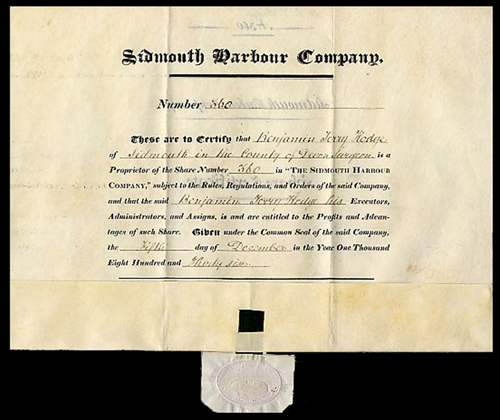 № 360
Sidmouth Harbour Company.
Number 360
These are to Certify that Benjamin Torry Hodge
of Sidmouth in the County of Devon Surgeon is a
Proprietor of the Share Number 360 in "THE SIDMOUTH HARBOUR
COMPANY," subject to the Rules, Regulations, and Orders of the said Company,
and that the said Benjamin Torry Hodge his Executors,
Administrators, and Assigns, is and are entitled to the Profits and Advan-
tages of such Share. Given under the Common Seal of the said Company,
the Fifth day of December in the Year One Thousand
Eight Hundred and Thirty six